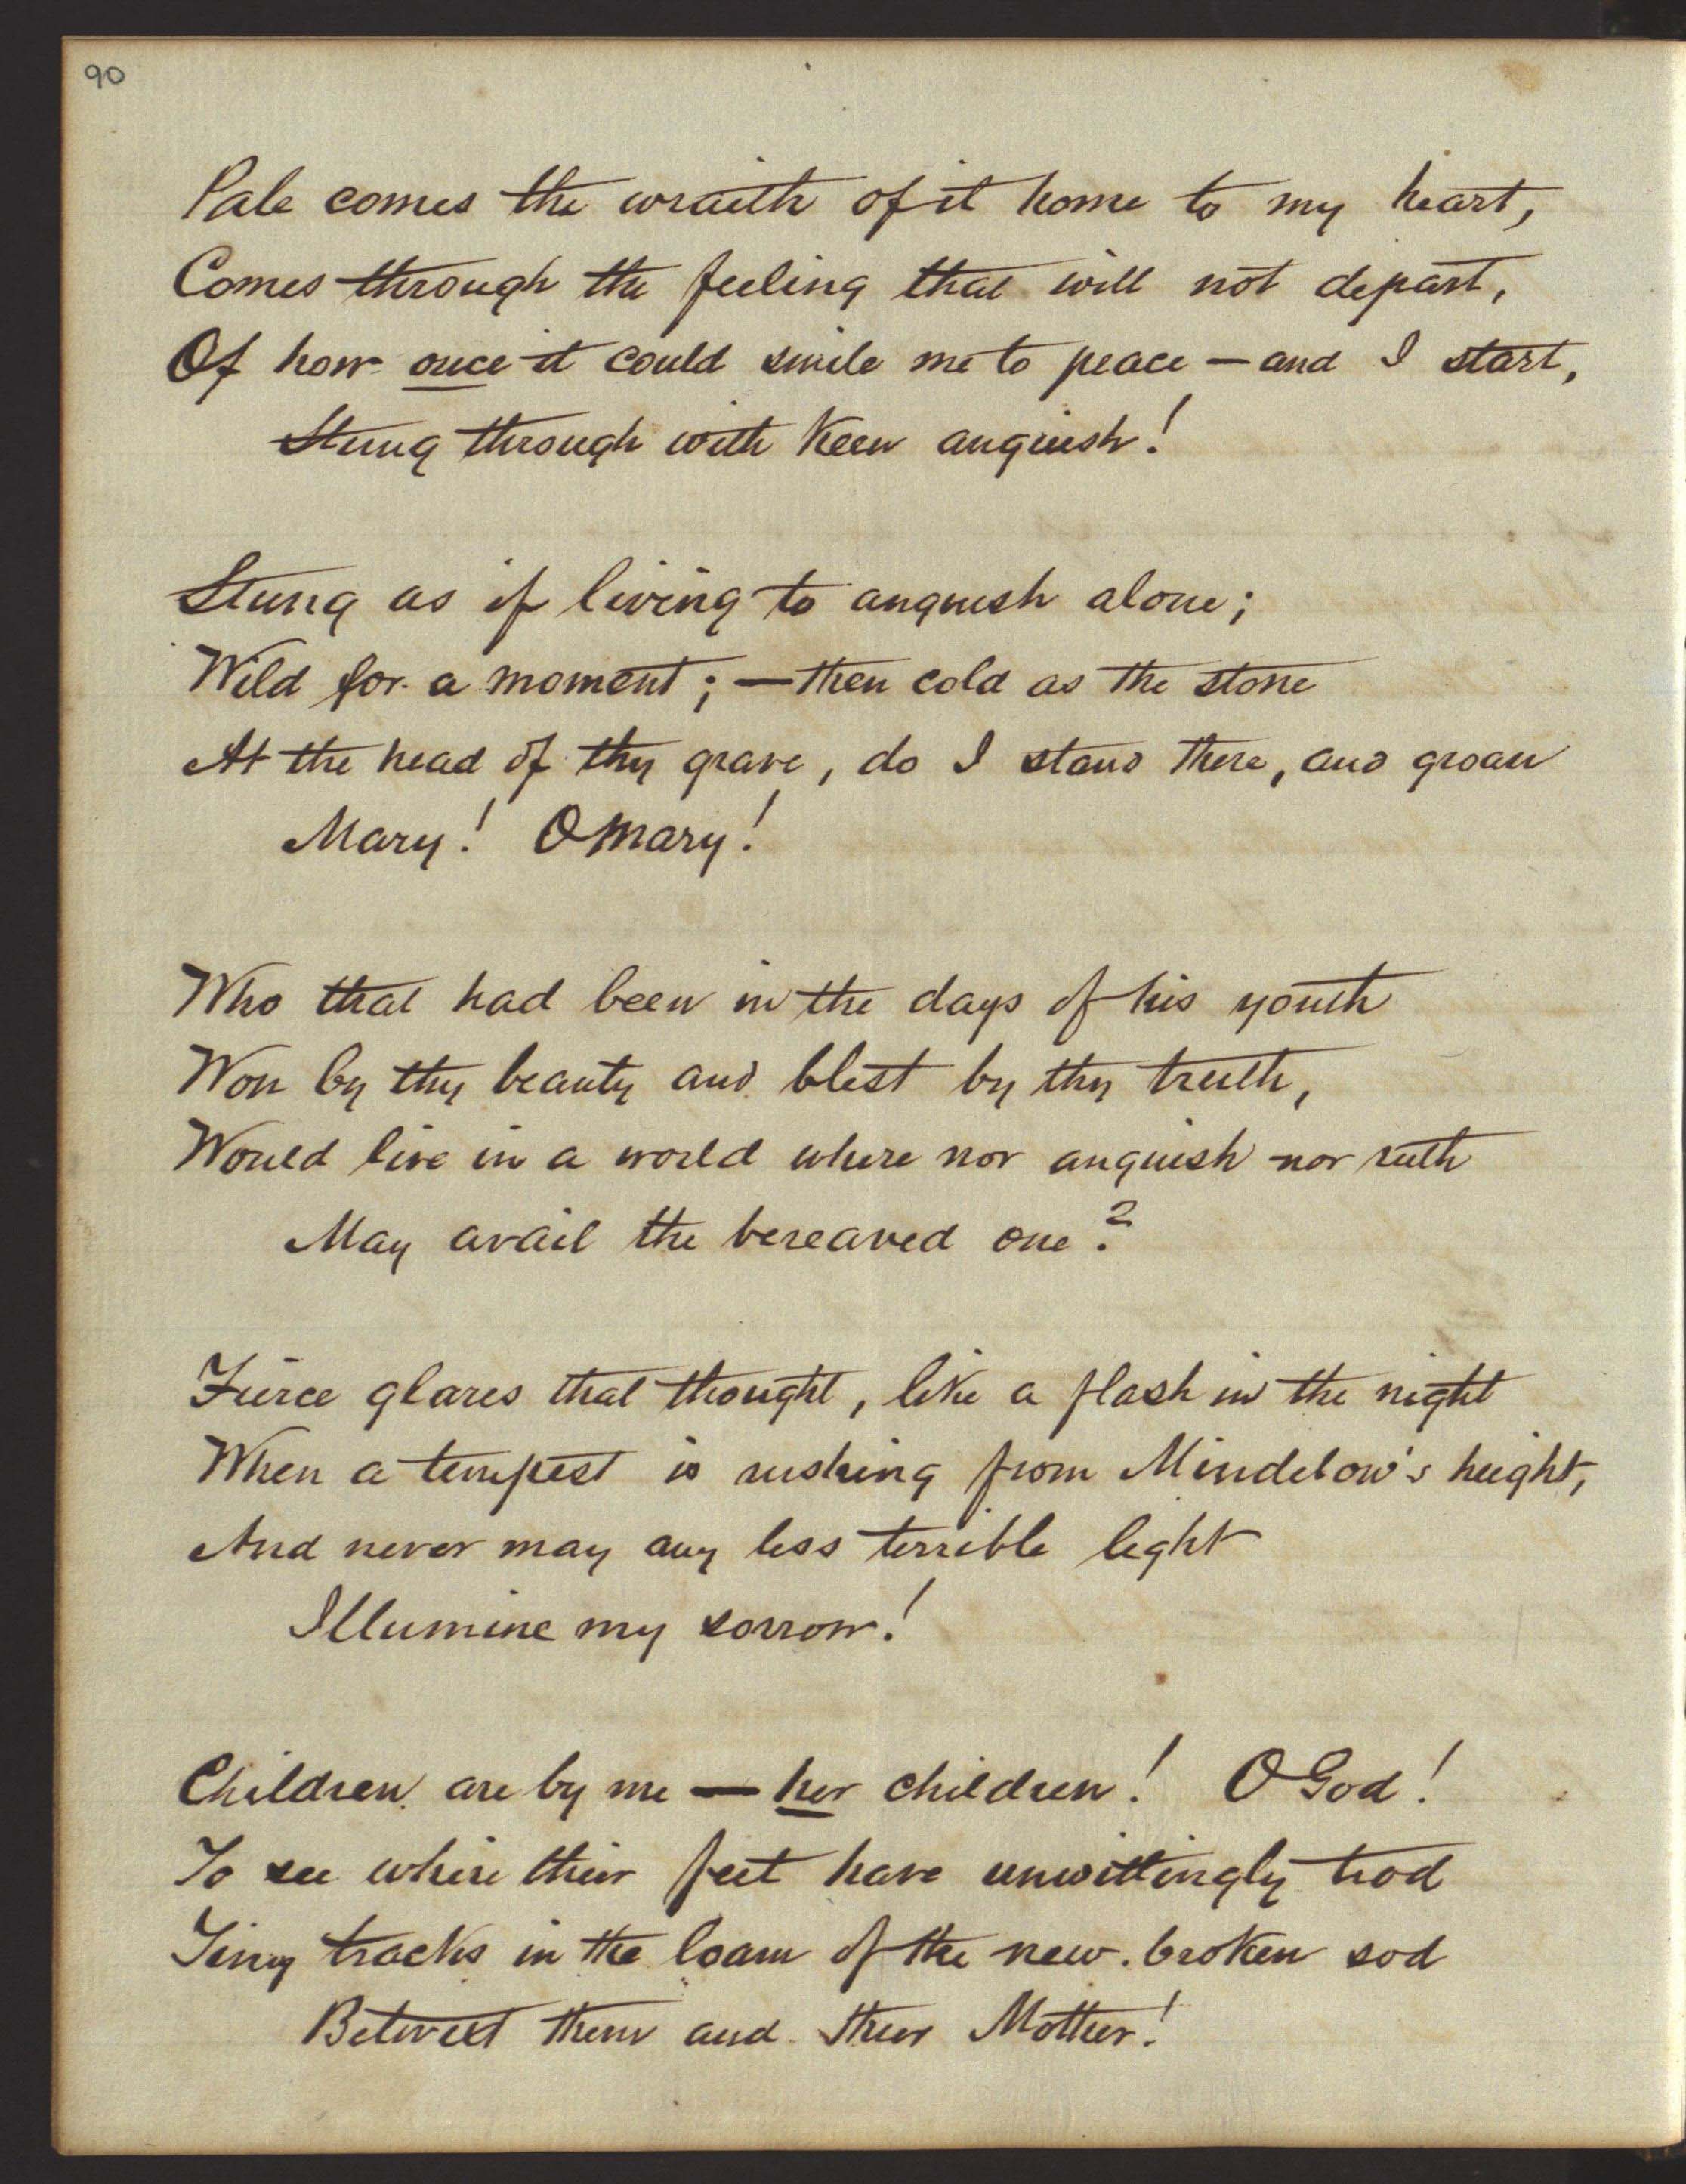 90
Pale comes the wraith of it home to my heart,
Comes through the feeling that will not depart,
Of how once it could smile me to peace — and I start,
Stung through with keen anguish!
Stung as if living to anguish alone;
Wild for a moment; — then cold as the stone
At the head of thy grave, do I stand there, and groan
Mary! O Mary!
Who that had been in the days of his youth
Won by thy beauty and blest by thy truth,
Would live in a world where nor anguish nor ruth
May avail the bereaved one?
Fierce glares that thought, like a flash in the night
When a tempest is rushing from Mindelow's height,
And never may any less terrible light
Illumine my sorrow!
Children are by me — her children! O God!
To see where their feet have unwittingly trod
Tiny tracks in the loam of the new-broken sod
Betwixt them and their Mother!